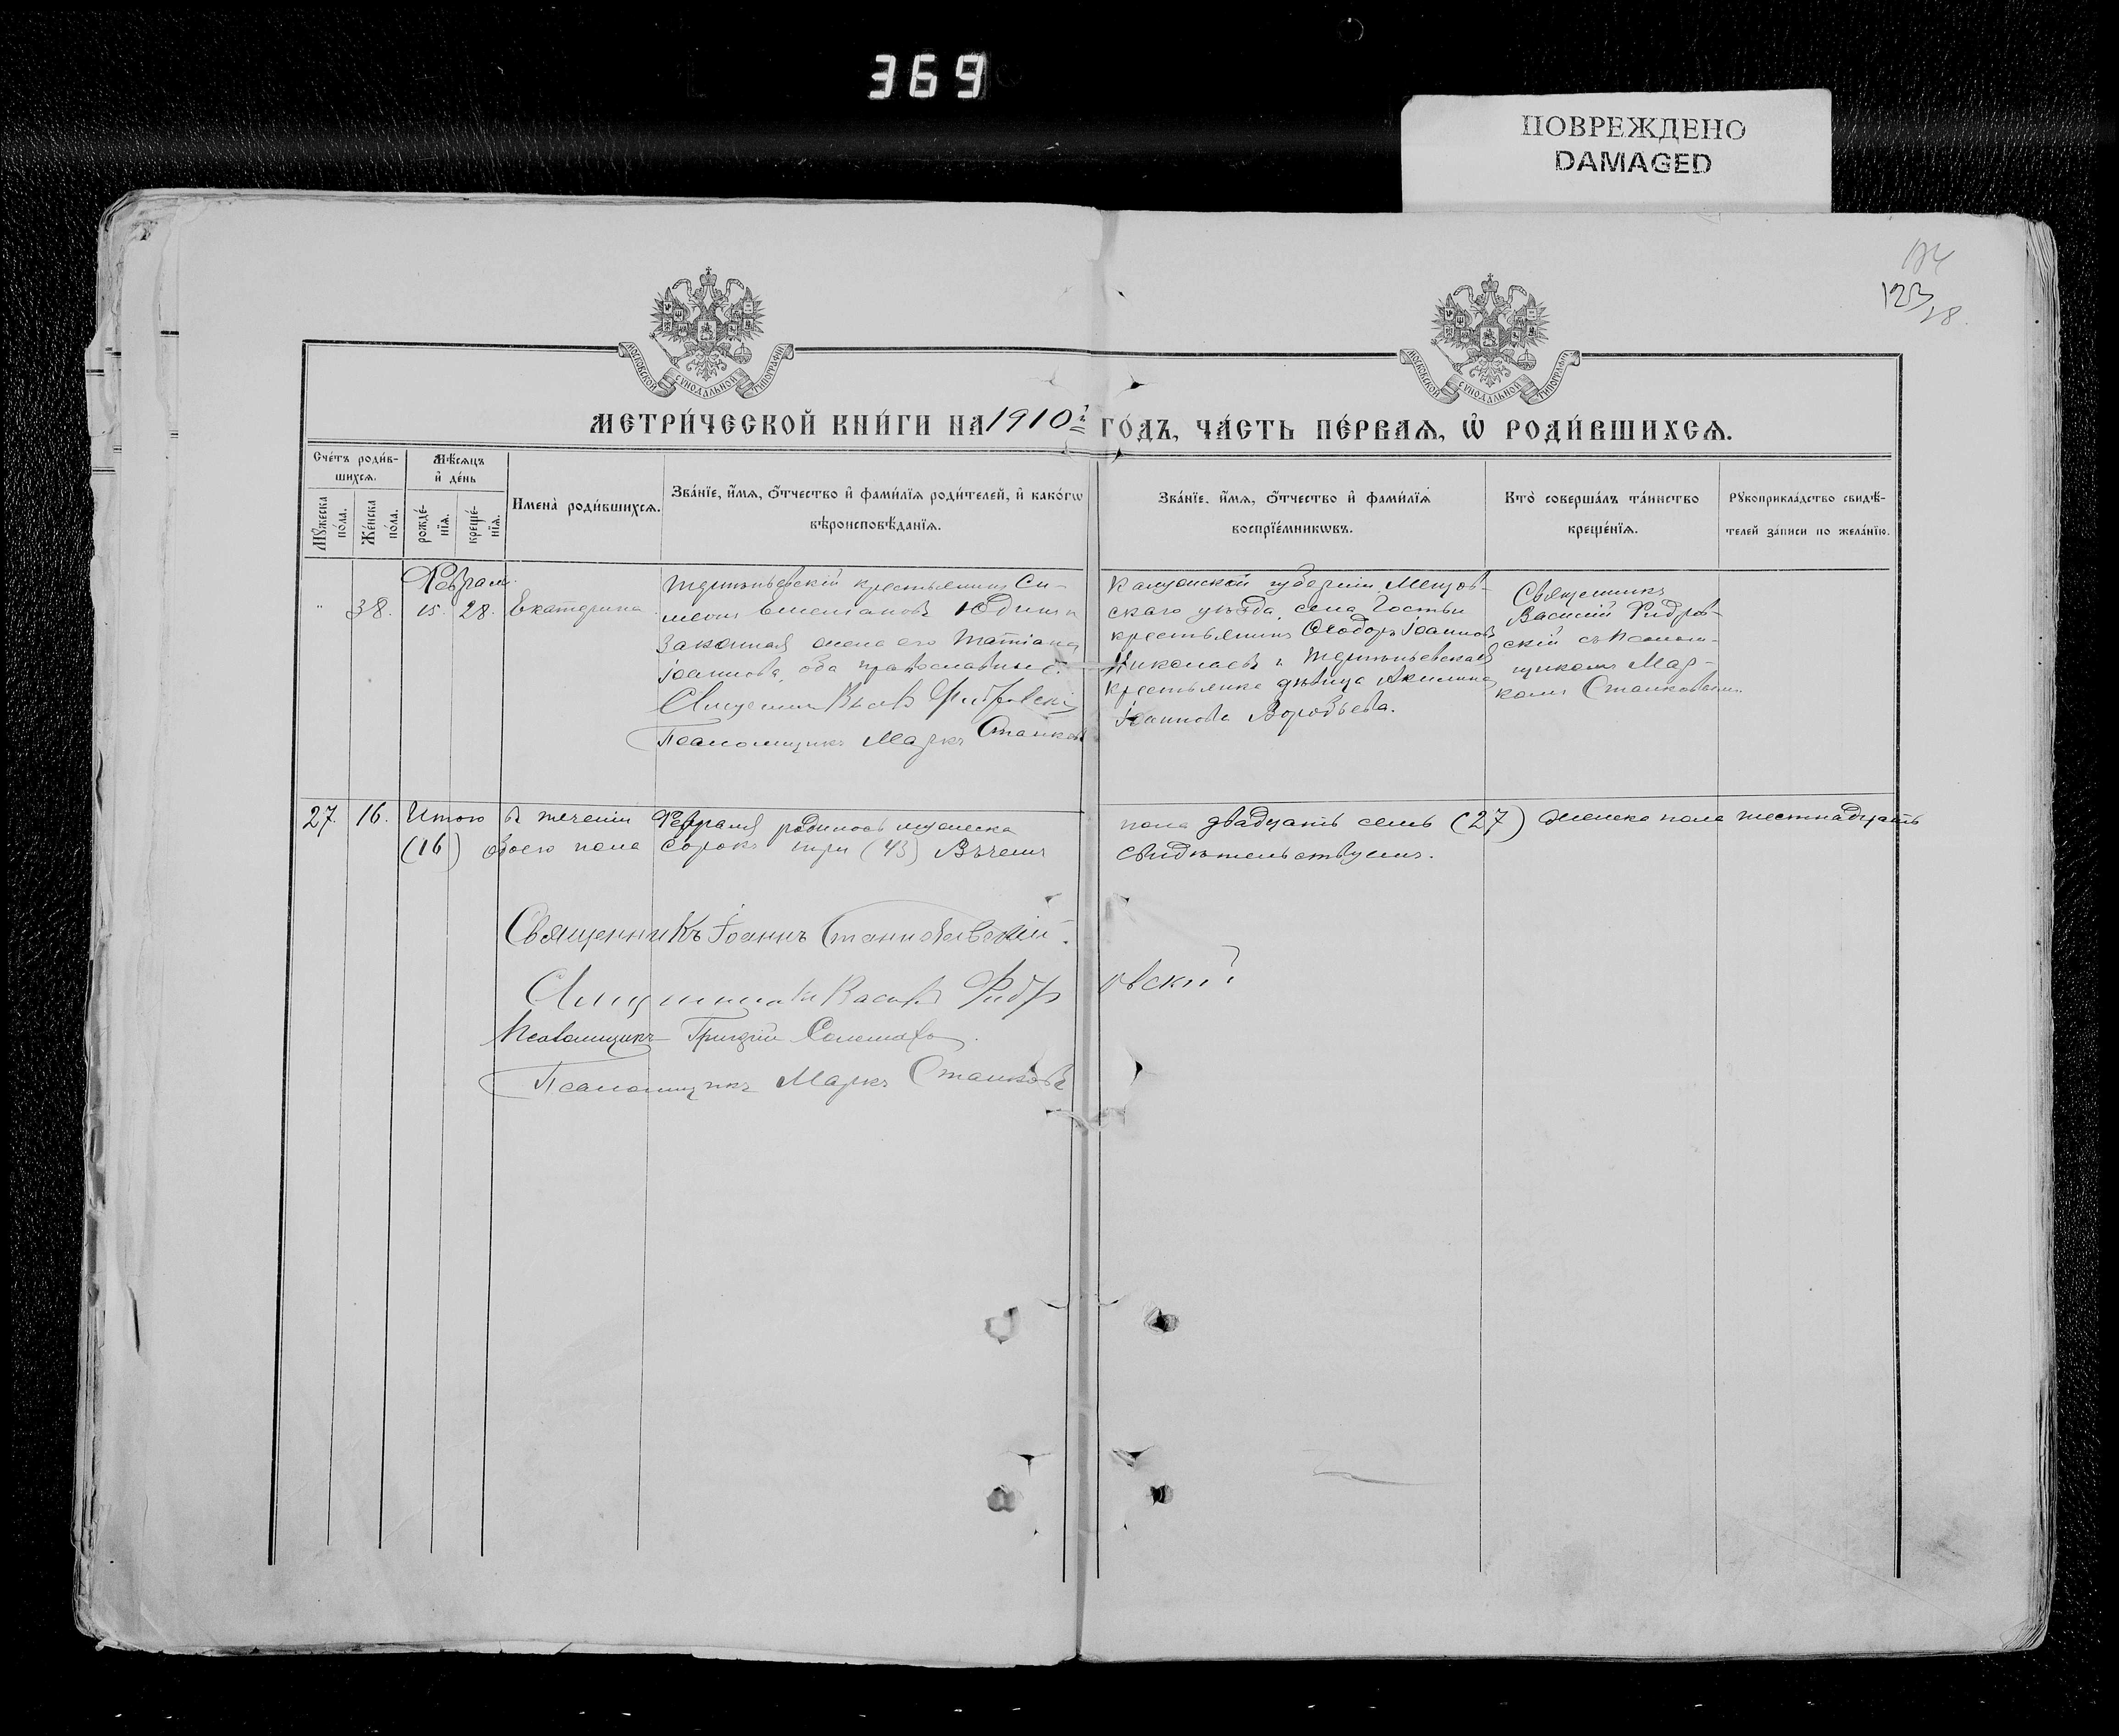 369
ПОВРЕЖДЕНО
DAMAGED
123
28
МОСКОВСКОЙ СѴНОДАЛЬНОЙ ТИПОГРАФІИ
МОСКОВСКОЙ СѴНОДАЛЬНОЙ ТИПОГРАФІИ
МЕТРИ́ЧЕСКОЙ КНИ́ГИ НА 1910й ГО́ДЪ, ЧА́СТЬ ПЕ́РВАѦ, Ѡ҆ РОДИ́ВШИХСѦ.
Сче́тъ роди́в-
шихсѧ.
Мꙋ́жеска по́ла.
Же́нска по́ла.
Мѣ́сѧцъ
и҆ де́нь
рожде́-
нїѧ.
креще́-
нїѧ.
Имена̀ роди́вшихсѧ.
Зва́нїе, и҆́мѧ, ѻ҆́тчество и҆ фами́лїѧ роди́телей, и҆ како́гѡ
вѣроисповѣ́данїѧ.
Зва́нїе, и҆́мѧ, ѻ҆́тчество и҆ фами́лїѧ
воспрїе́мникѡвъ.
Кто̀ соверша́лъ та́инство
креще́нїѧ.
Рꙋкоприкла́дство свидѣ́-
телей за́писи по жела́нїю.
Феврал.
38. 15. 28. Екатерина
крестьянинъ Си-
меонъ Юдинъ и
законная жена его Татіана
Іоаннова, оба православные.
Священникъ
Псаломщикъ Маркъ Станковъ
Калужской губерніи, Мещов-
скаго уѣзда, села Гостьи
крестьянинъ Ѳеодоръ Іоанновъ
Николаевъ и
крестьянка дѣвица Акилина
Іоаннова Воробьева.
Священникъ
Василій Фидров-
скій съ псалом-
щикомъ Мар-
комъ Станковымъ.
27. 16. Итого въ теченіи Февраля родилось мужеска
пола двадцать семь (27) женска пола шестнадцать
(16) обоего пола сорокъ три (43) Въ чемъ
свидѣтельствуемъ.
Священникъ Іоаннъ
Священникъ Фидровскій
Псаломщикъ Григорій
Псаломщикъ Маркъ Станковъ